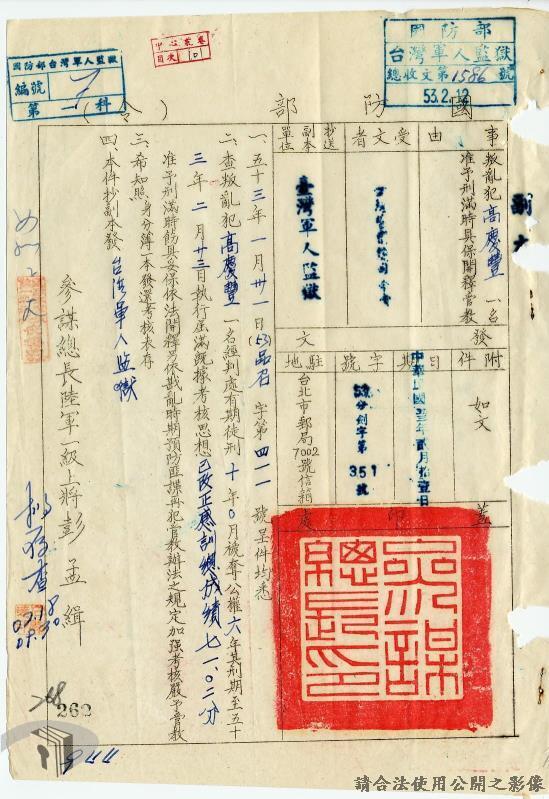 國防部
台灣軍人監獄
總收文第1586號
53.2.12
國防部台灣軍人監獄
編號
第一科
目次
國防部(令)
事由
叛亂犯高慶豐一名
准予刑滿時具保開釋管教
受文者
抄送副本單位
臺灣軍人監獄
副本
附件
如文
日期
中華民國五三年貳月拾壹日
字號
351號
發文
駐地
台北市郵局7002號信箱
蓋印處
參謀總長印
一、五十三年一月卅一日(53)品名字第四一一號呈件均悉
二、查叛亂犯高慶豐一名經判處有期徒刑十年0月褫奪公權六年其刑期至五十
三年二月廿三日執行屆滿既據考核思想已改正感訓總成績七一.0二分
准予刑滿時飭具妥保依法開釋另依戡亂時期預防匪諜再犯管教辦法之規定加強考核嚴予管教
三、希知照身分簿一本發還考核表存
四、本件抄副本發台灣軍人監獄
參謀總長陸軍一級上將彭孟緝
262
請合法使用公開之影像